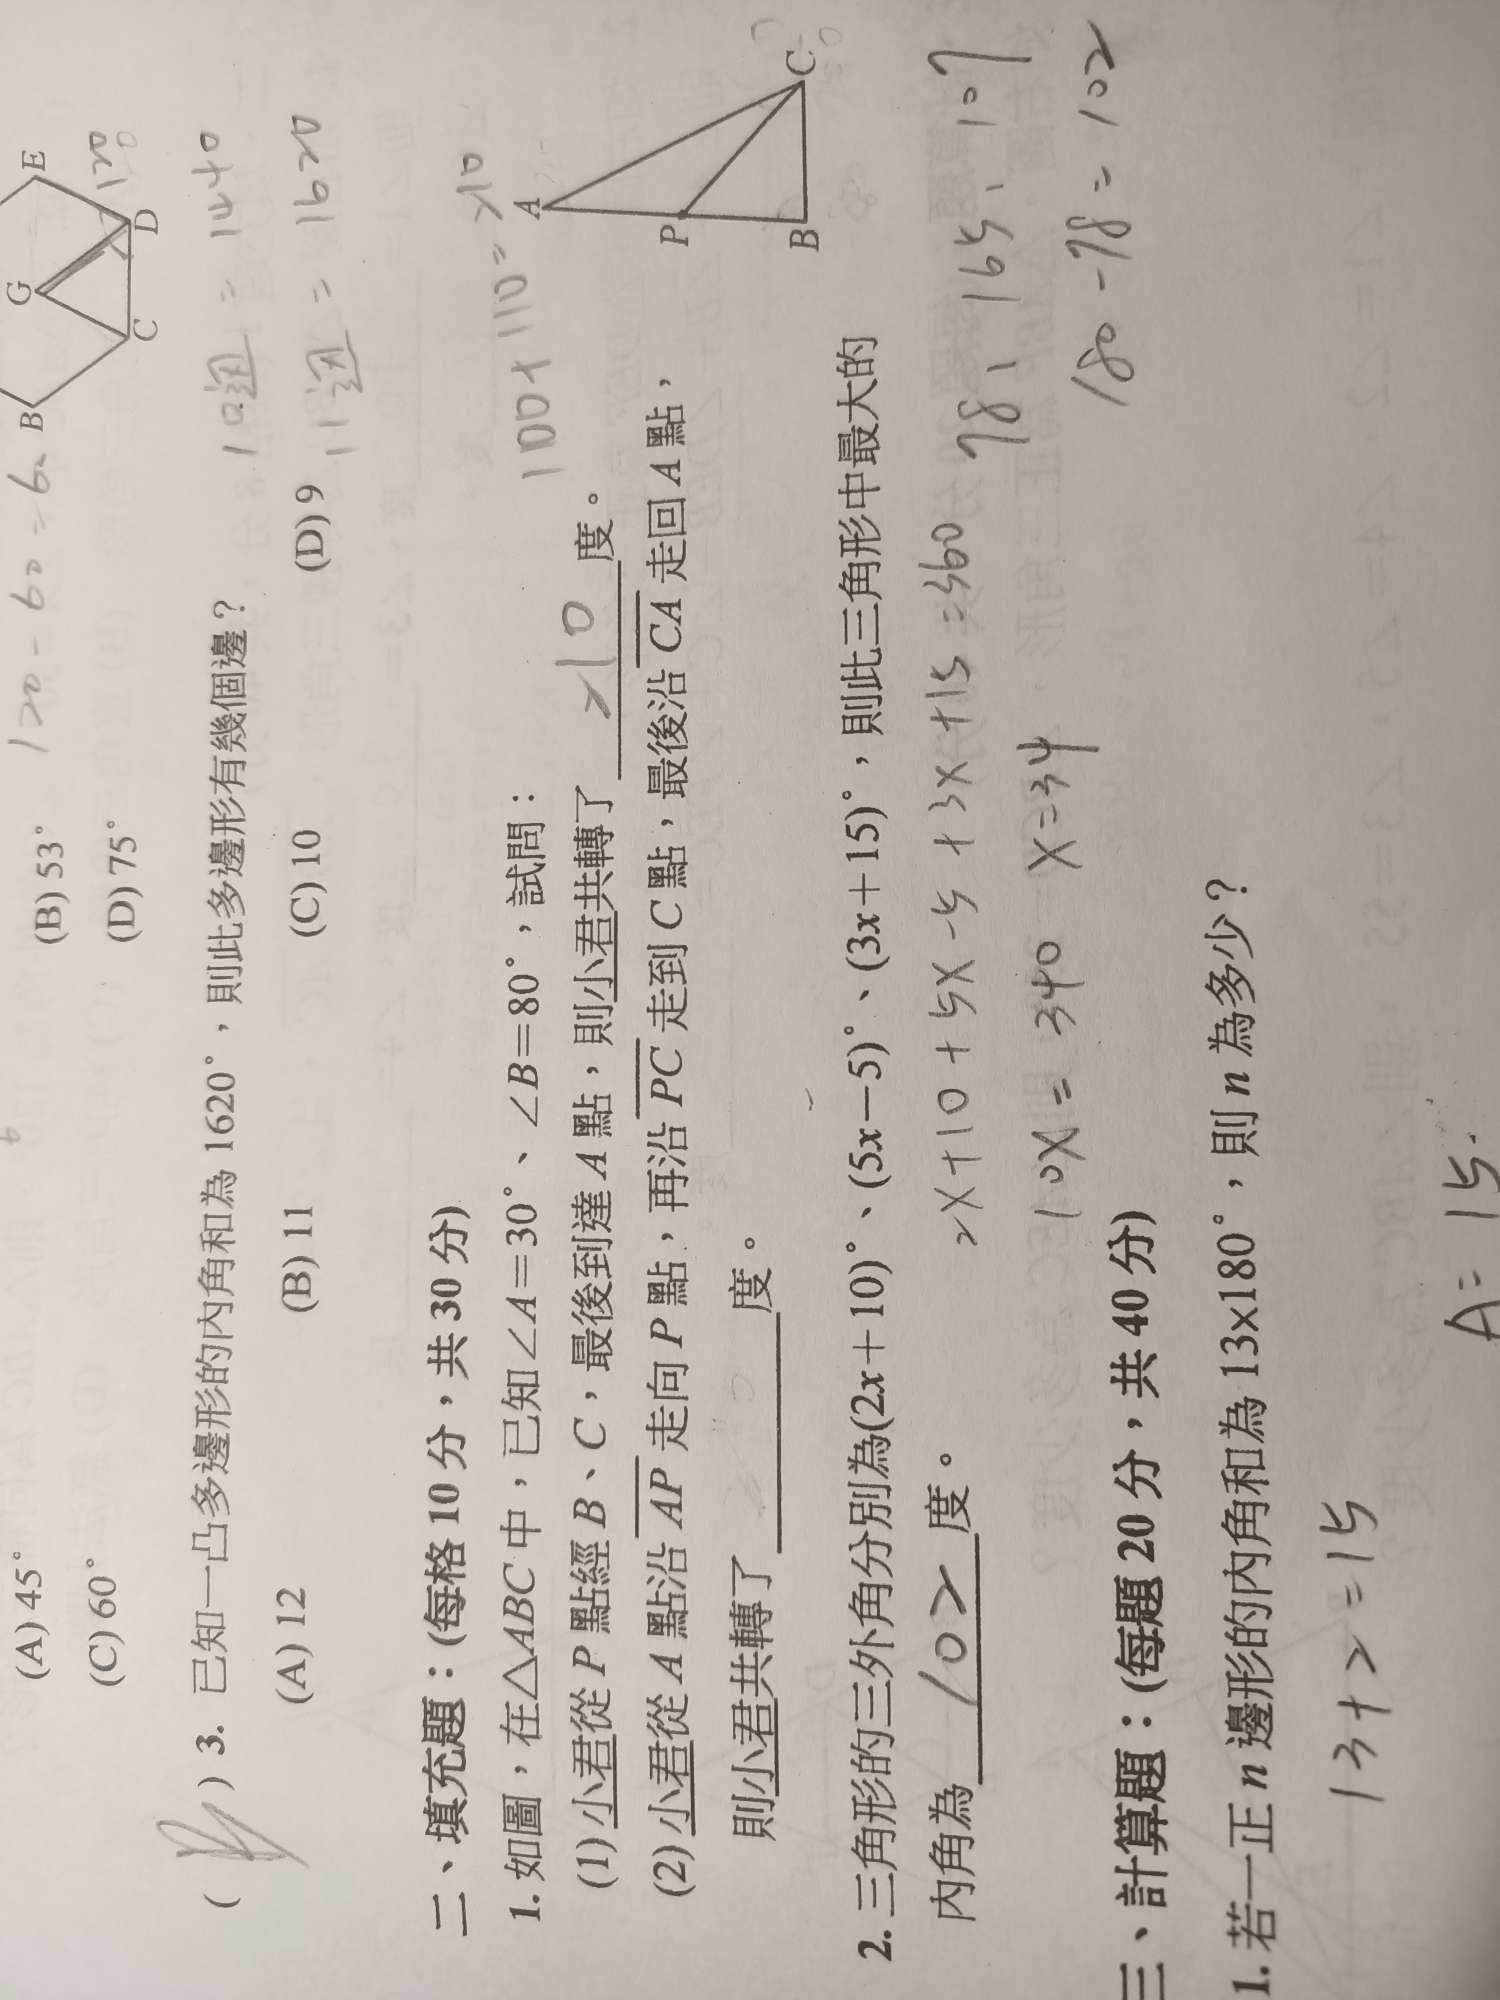 B G E
C D
120
120 - 60 = 60
(A) 45° (B) 53°
(C) 60° (D) 75°
( B ) 3. 已知一凸多邊形的內角和為 1620°,則此多邊形有幾個邊?
10邊 = 1440
(A) 12 (B) 11 (C) 10 (D) 9
11邊 = 1620
二、填充題:(每格 10 分,共 30 分)
100+110=210
1. 如圖,在△ABC 中,已知∠A=30°、∠B=80°,試問:
(1) 小君從 P 點經 B、C,最後到達 A 點,則小君共轉了 210 度。
(2) 小君從 A 點沿 AP 走向 P 點,再沿 PC 走到 C 點,最後沿 CA 走回 A 點,
則小君共轉了 度。
A
P
B C
2. 三角形的三外角分別為(2x+10)°、(5x-5)°、(3x+15)°,則此三角形中最大的
內角為 102 度。
2X+10+5X-5+3X+15=360
10X = 340 X=34
78、165、107
180-78=102
三、計算題:(每題 20 分,共 40 分)
1. 若一正 n 邊形的內角和為 13x180°,則 n 為多少?
13+2=15
A= 15.